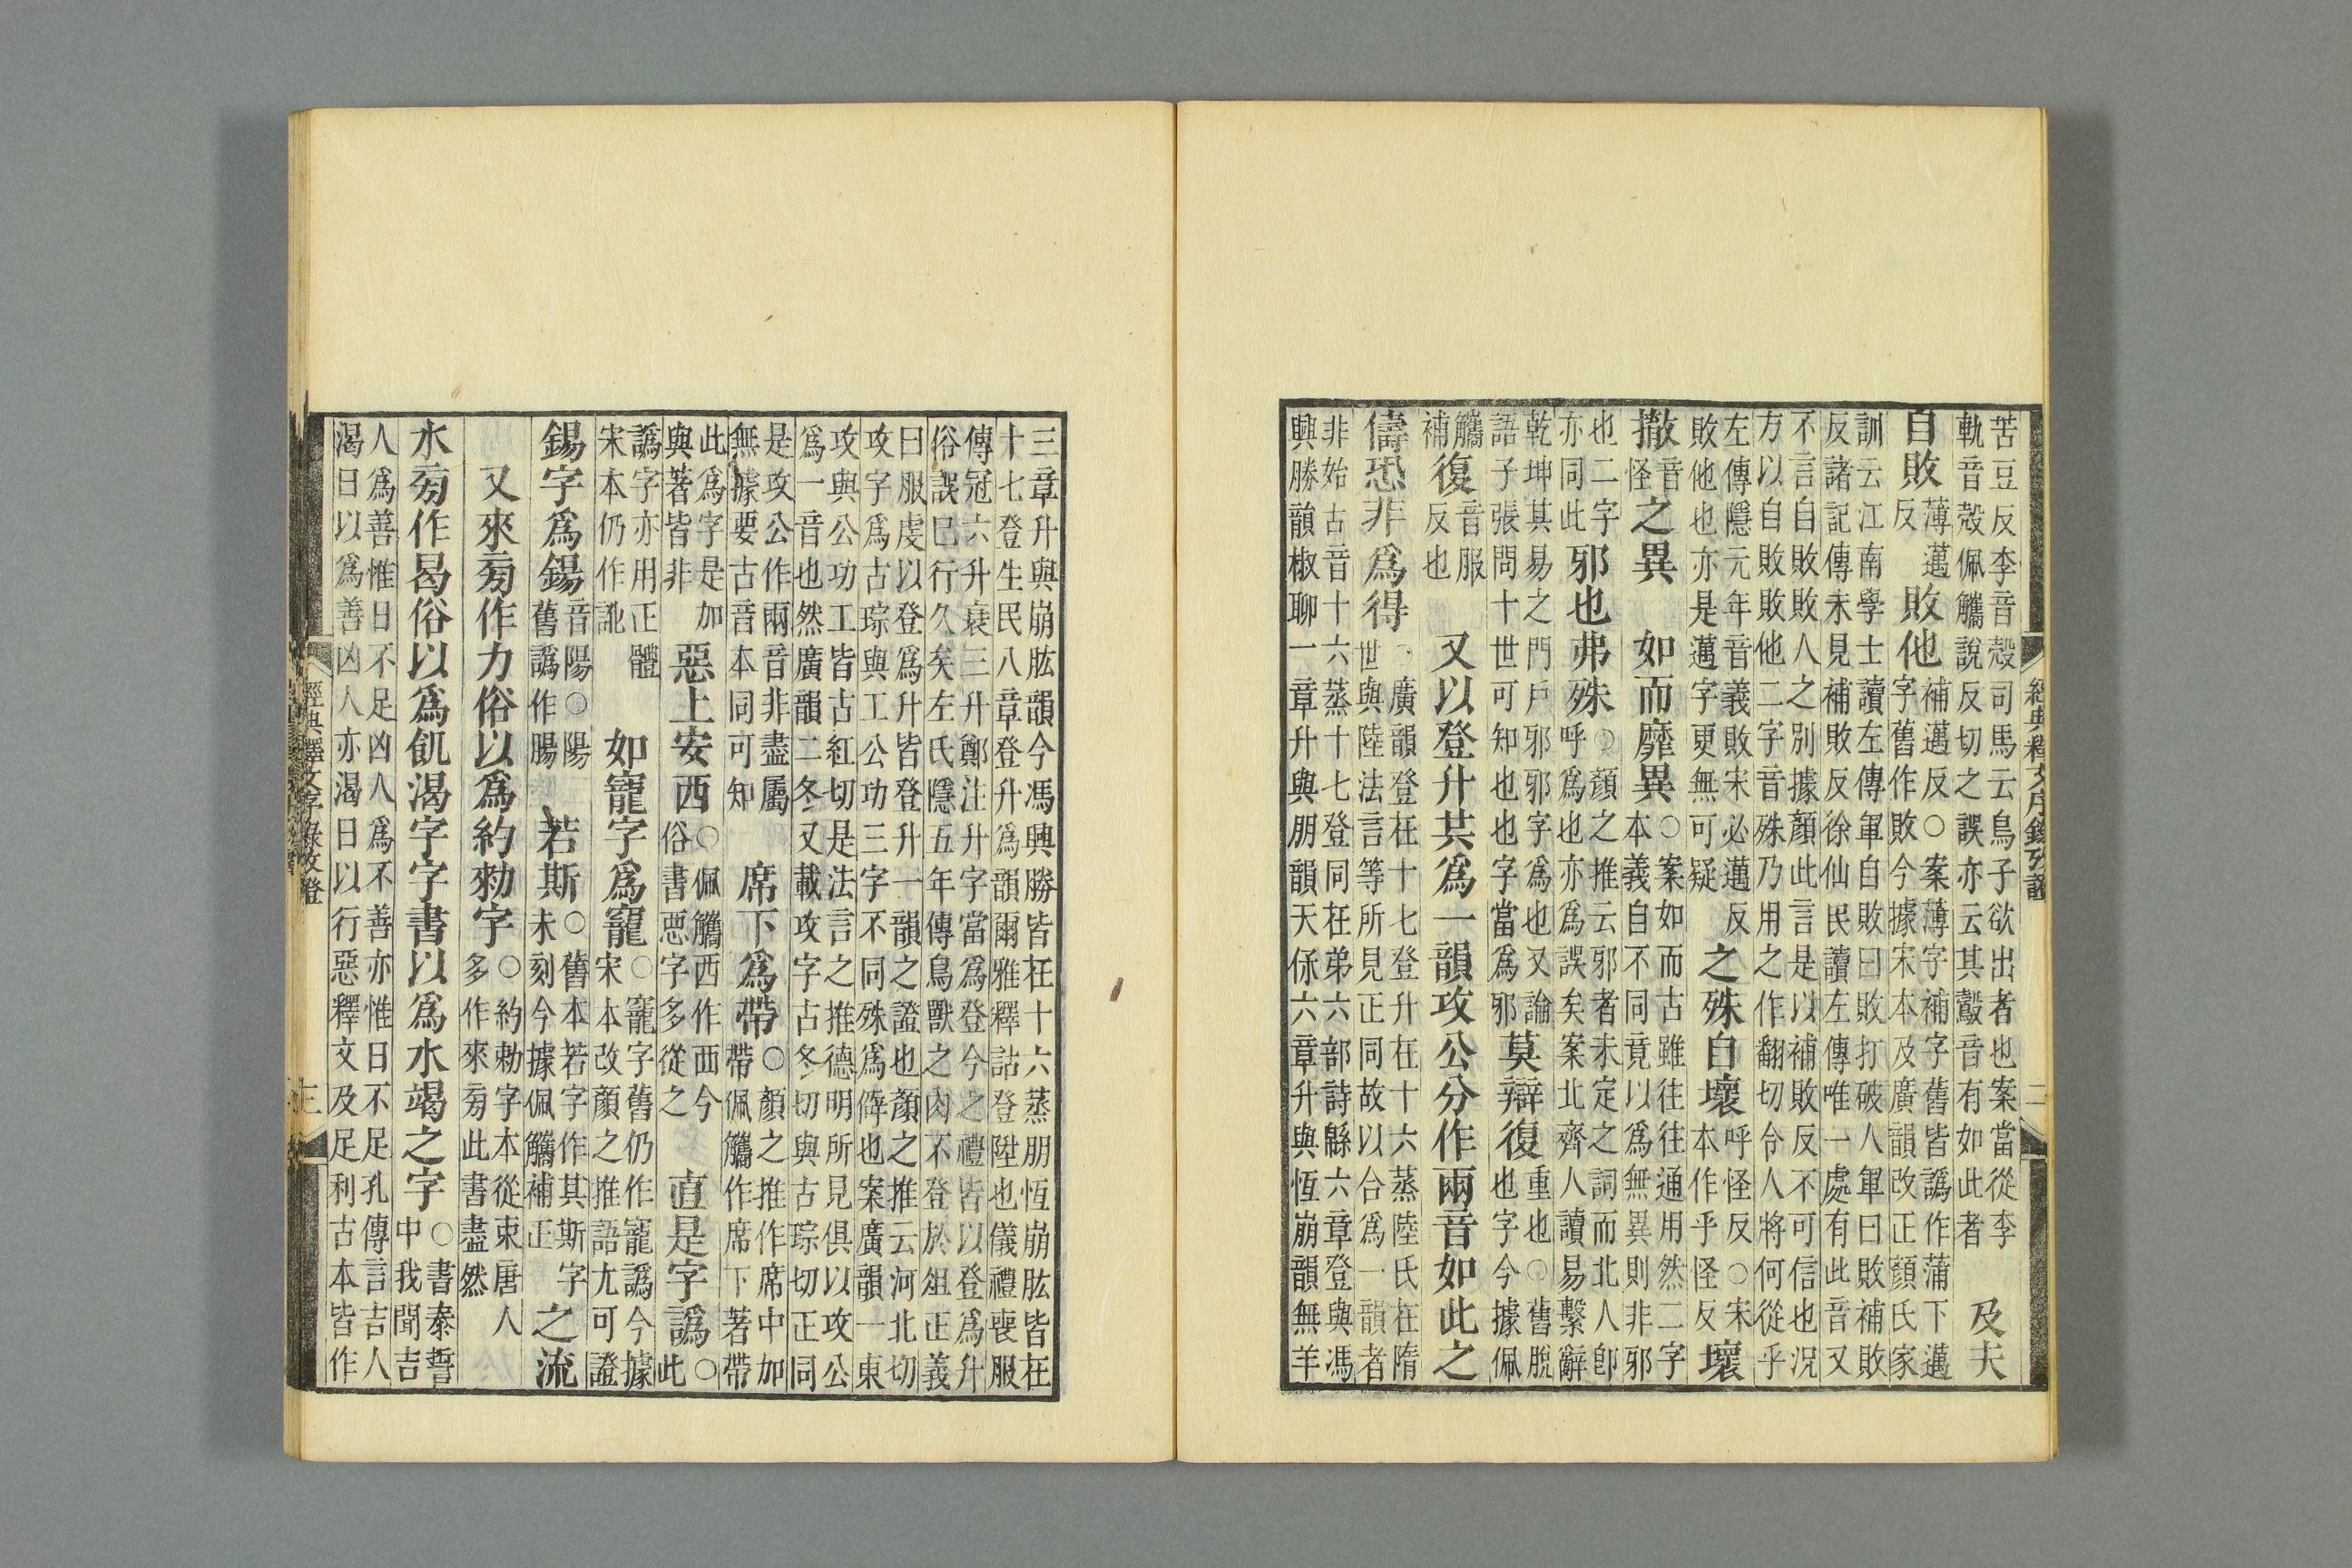 苦豆反李音殼司馬云鳥子欲出者也案當從李
軌音殼佩觿說反切之誤亦云其鷇音有如此者
及夫
自敗
薄邁
反
敗他
補邁反○案薄字補字舊皆譌作蒲下邁
字舊作敗今據宋本及廣韻改正顏氏家
訓云江南學士讀左傳軍自敗曰敗打破人軍曰敗補敗
反諸記傳未見補敗反徐仙民讀左傳唯一處有此音又
不言自敗敗人之別據顏此言是以補敗反不可信也況
方以自敗敗他二字音殊乃用之作翻切令人將何從乎
左傳隱元年音義敗宋必邁反
敗他也亦是邁字更無可疑
之殊自壞
呼怪反○宋
本作乎怪反
壞
撤
音
怪
之異
如而靡異
○案如而古雖往往通用然二字
本義自不同竟以為無異則非邪
也二字
亦同此
邪也弗殊
○顏之推云邪者未定之詞而北人卽
呼爲也亦爲誤矣案北齊人讀易繫辭
乾坤其易之門戶邪邪字爲也又論
語子張問十世可知也也字當爲邪
莫辯復
重也○舊脫
也字今據佩
觿
補
復
音服
反也
又以登升共爲一韻攻公分作兩音如此之
儔恐非爲得
○廣韻登在十七登升在十六蒸陸氏在隋
世與陸法言等所見正同故以合爲一韻者
非始古音十六蒸十七登同在弟六部詩緜六章登與馮
興勝韻椒聊一章升與朋韻天保六章升與恆崩韻無羊
三章升與崩肱韻今馮興勝皆在十六蒸朋恆崩肱皆在
十七登生民八章登升爲韻爾雅釋詁登陞也儀禮喪服
傳冠六升衰三升鄭注升字當爲登今之禮皆以登爲升
俗誤已行久矣左氏隱五年傳鳥獸之肉不登於俎正義
曰服虔以登爲升皆登升一韻之證也顏之推云河北切
攻字爲古琮與工公功三字不同殊爲僻也案廣韻一東
攻與公功工皆古紅切是法言之推德明所見俱以攻公
爲一音也然廣韻二冬又載攻字古冬切與古琮切正同
是攻公作兩音非盡屬
無據要古音本同可知
席下爲帶
○顏之推作席中加
帶佩觿作席下著帶
此爲字是加
與著皆非
惡上安西
○佩觿西作西今
俗書惡字多從之
直是字譌
○
此
譌字亦用正體
宋本仍作訛
如寵字爲寵
○寵字舊仍作寵譌今據
宋本改顏之推語尤可證
錫字爲鍚
音陽○陽
舊譌作腸
若斯
○舊本若字作其斯字
未刻今據佩觿補正
之流
又來旁作力俗以爲約勑字
○約勑字本從束唐人
多作來旁此書盡然
水旁作曷俗以爲飢渴字字書以爲水竭之字
○書泰誓
中我聞吉
人爲善惟日不足凶人爲不善亦惟日不足孔傳言吉人
渴日以爲善凶人亦渴日以行惡釋文及足利古本皆作
經典釋文序錄攷證
二
經典釋文序錄攷證
三